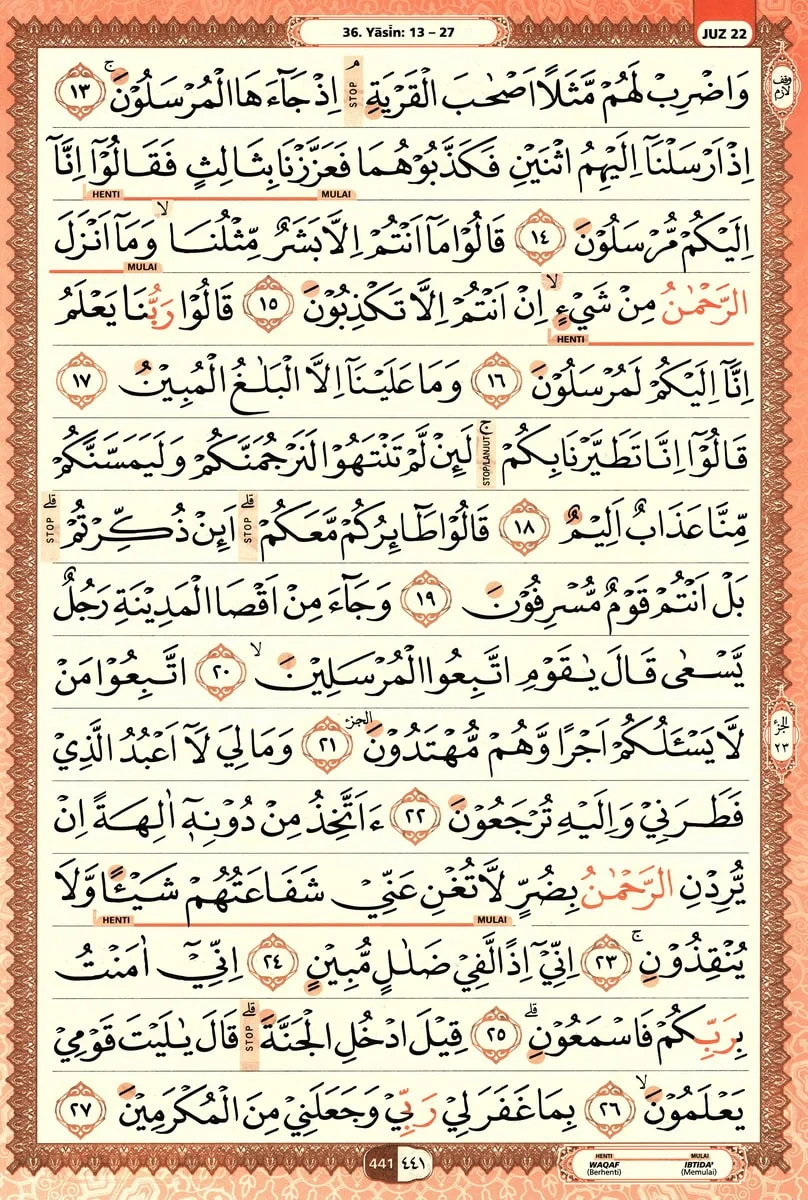 36. Yāsin: 13 – 27
JUZ 22
وَاضْرِبْ لَهُمْ مَّثَلًا اَصْحٰبَ الْقَرْيَةِۘ اِذْ جَاۤءَهَا الْمُرْسَلُوْنَۚ ١٣
STOP
وقف لازم
اِذْ اَرْسَلْنَآ اِلَيْهِمُ اثْنَيْنِ فَكَذَّبُوْهُمَا فَعَزَّزْنَا بِثَالِثٍ فَقَالُوْٓا اِنَّآ
MULAI HENTI
اِلَيْكُمْ مُّرْسَلُوْنَ ١٤ قَالُوْا مَآ اَنْتُمْ اِلَّا بَشَرٌ مِّثْلُنَاۙ وَمَآ اَنْزَلَ
MULAI
الرَّحْمٰنُ مِنْ شَيْءٍۙ اِنْ اَنْتُمْ اِلَّا تَكْذِبُوْنَ ١٥ قَالُوْا رَبُّنَا يَعْلَمُ
HENTI
اِنَّآ اِلَيْكُمْ لَمُرْسَلُوْنَ ١٦ وَمَا عَلَيْنَآ اِلَّا الْبَلٰغُ الْمُبِيْنُ ١٧
قَالُوْٓا اِنَّا تَطَيَّرْنَا بِكُمْۚ لَىِٕنْ لَّمْ تَنْتَهُوْا لَنَرْجُمَنَّكُمْ وَلَيَمَسَّنَّكُمْ
STOP/LANJUT
مِّنَّا عَذَابٌ اَلِيْمٌ ١٨ قَالُوْا طَاۤىِٕرُكُمْ مَّعَكُمْۗ اَىِٕنْ ذُكِّرْتُمْۗ
STOP STOP
بَلْ اَنْتُمْ قَوْمٌ مُّسْرِفُوْنَ ١٩ وَجَاۤءَ مِنْ اَقْصَا الْمَدِيْنَةِ رَجُلٌ
يَّسْعٰى قَالَ يٰقَوْمِ اتَّبِعُوا الْمُرْسَلِيْنَۙ ٢٠ اتَّبِعُوْا مَنْ
لَّا يَسْـَٔلُكُمْ اَجْرًا وَّهُمْ مُّهْتَدُوْنَ ۔ الجزء ٢١ وَمَا لِيَ لَآ اَعْبُدُ الَّذِيْ
الجزء ٢٣
فَطَرَنِيْ وَاِلَيْهِ تُرْجَعُوْنَ ٢٢ ءَاَتَّخِذُ مِنْ دُوْنِهٖٓ اٰلِهَةً اِنْ
يُّرِدْنِ الرَّحْمٰنُ بِضُرٍّ لَّا تُغْنِ عَنِّيْ شَفَاعَتُهُمْ شَيْـًٔا وَّلَا
MULAI HENTI
يُنْقِذُوْنِۚ ٢٣ اِنِّيْٓ اِذًا لَّفِيْ ضَلٰلٍ مُّبِيْنٍ ٢٤ اِنِّيْٓ اٰمَنْتُ
بِرَبِّكُمْ فَاسْمَعُوْنِۗ ٢٥ قِيْلَ ادْخُلِ الْجَنَّةَۗ قَالَ يٰلَيْتَ قَوْمِيْ
STOP
يَعْلَمُوْنَۙ ٢٦ بِمَا غَفَرَ لِيْ رَبِّيْ وَجَعَلَنِيْ مِنَ الْمُكْرَمِيْنَ ٢٧
441 ٤٤١
HENTI MULAI
WAQAF IBTIDA'
(Berhenti) (Memulai)